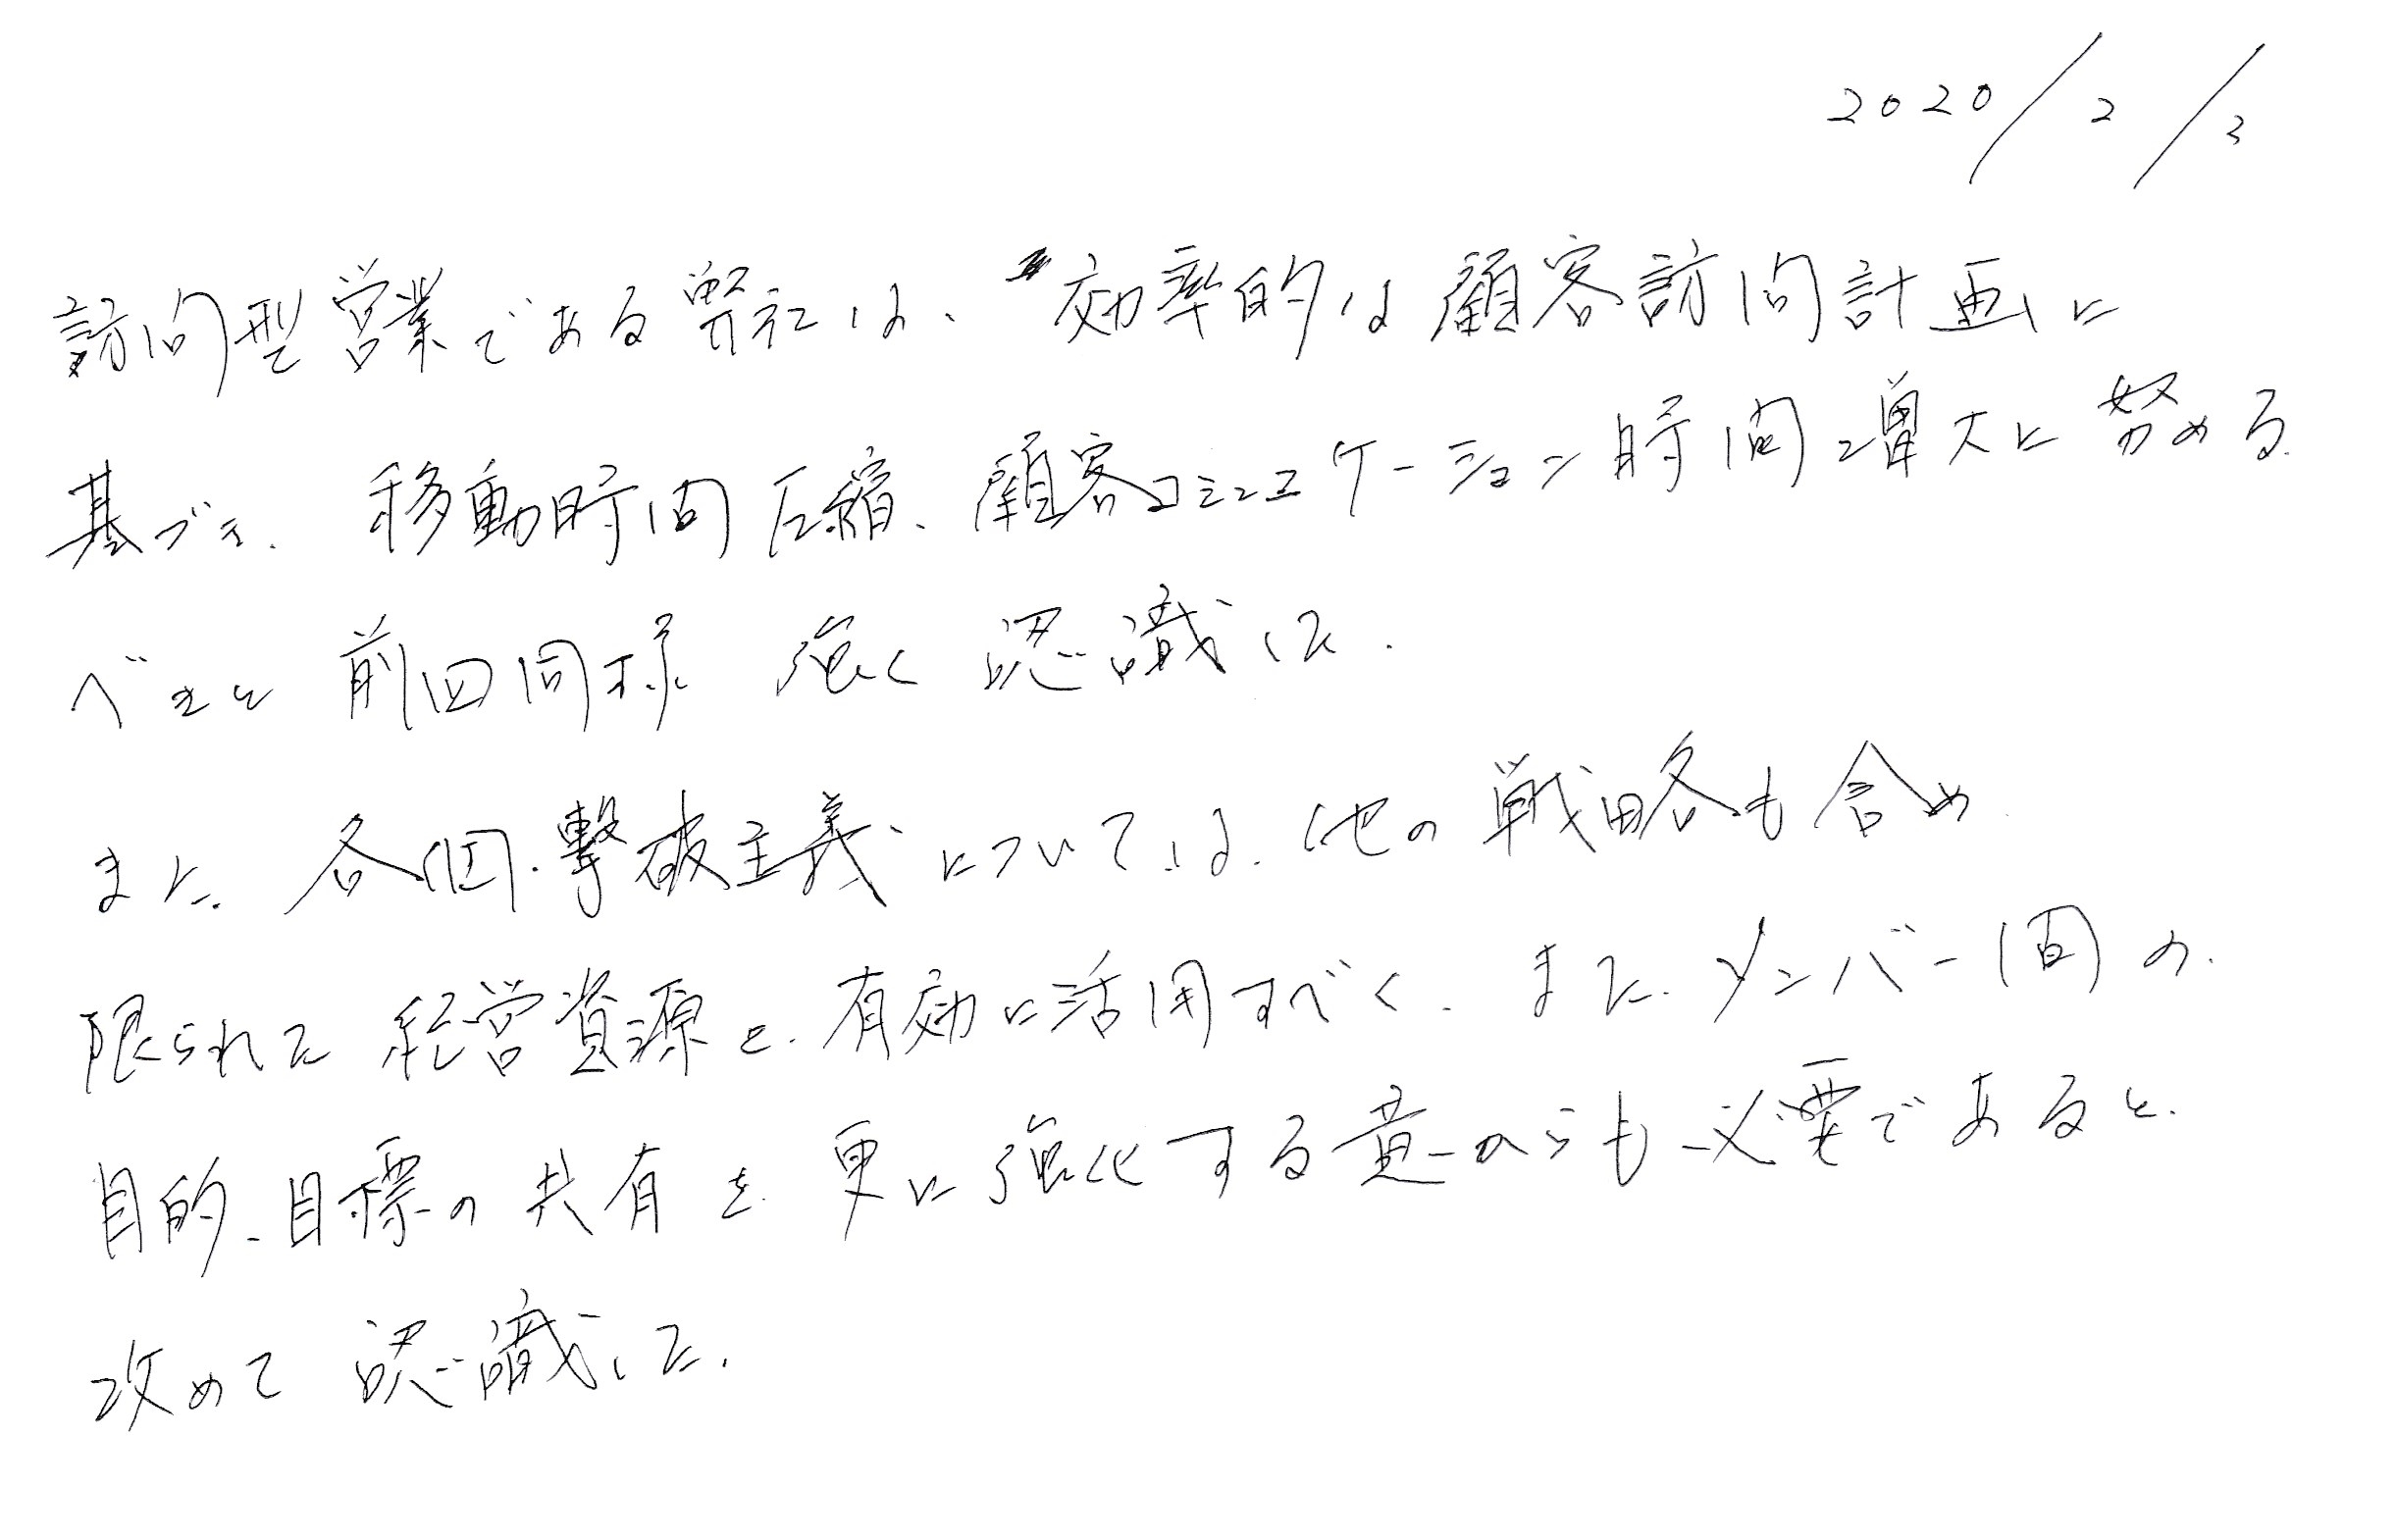 2020/2/3
訪問型営業である弊社は、効率的な顧客訪問計画に
基づき、移動時間圧縮、顧客コミュニケーション時間増大に努める
べきと前回同様 強く認識した.
また、各個撃破主義については、他の戦略も含め、
限られた経営資源を、有効に活用すべく、また、メンバー間の、
目的、目標の共有を、更に強化する意からも必要であると、
改めて認識した.